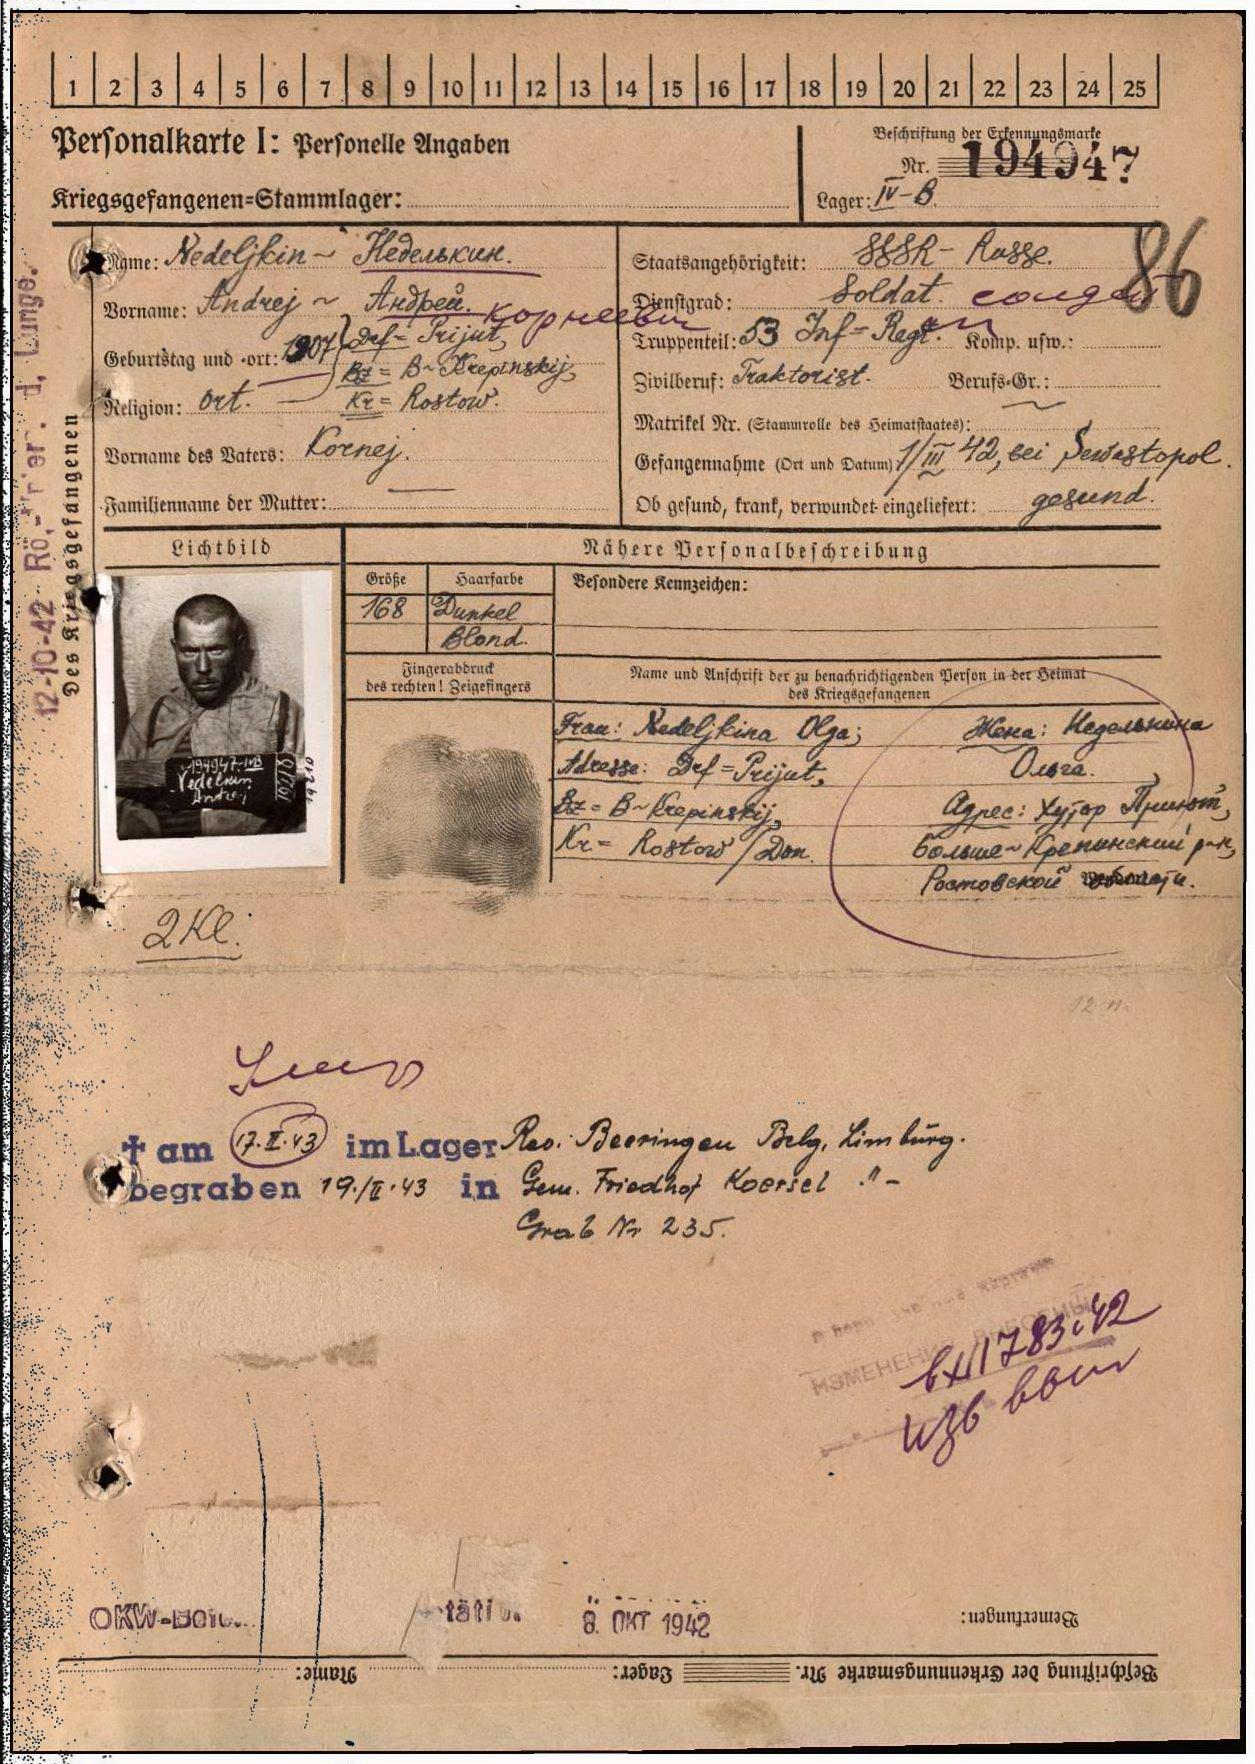 1 2 3 4 5 6 7 8 9 10 11 12 13 14 15 16 17 18 19 20 21 22 23 24 25
Personalkarte I: Personelle Angaben
Kriegsgefangenen=Stammlager:
Beschriftung der Erkennungsmarke
Nr. 194947
Lager: IV-B.
86
Name: Nedeljkin ~ Неделькин.
Vorname: Andrej ~ Андрей. Корнеевич
Geburtstag und -ort: 1907 Drf= Prijut,
Bz= B~Krepinskij,
Religion: ort. Kr= Rostow.
Vorname des Vaters: Kornej.
Familienname der Mutter: —
Staatsangehörigkeit: SSSR - Russe.
Dienstgrad: Soldat. солдат
Truppenteil: 53 Inf= Regt. Komp. usw.:
Zivilberuf: Traktorist. Berufs-Gr.:
Matrikel Nr. (Stammrolle des Heimatstaates):
Gefangennahme (Ort und Datum) 1/III 42, bei Sewastopol.
Ob gesund, krank, verwundet eingeliefert: gesund.
12-10-42
Des Kriegsgefangenen
Lichtbild
Nähere Personalbeschreibung
Größe Haarfarbe Besondere Kennzeichen:
168 Dunkel
Blond.
Fingerabdruck
des rechten! Zeigefingers
Name und Anschrift der zu benachrichtigenden Person in der Heimat
des Kriegsgefangenen
194947 IVB
Nedelkin
Andrej
Frau: Nedeljkina Olga;
Adresse: Drf= Prijut,
Bz= B~Krepinskij,
Kr= Rostow/Don.
Жена: Неделькина
Ольга.
Адрес: Хутор Приют,
Больше~Крепинский р-н,
Ростовской области.
2 Kl.
† am 17.II.43 im Lager Rev. Beeringen Belg. Limburg.
begraben 19./II.43 in Gem. Friedhof Koersel "-
Grab Nr 235.
8. OKT 1942
Bemerkungen:
Beschriftung der Erkennungsmarke Nr. Lager: Name: